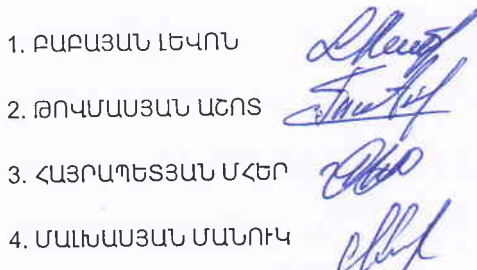 1. ԲԱԲԱՅԱՆ ԼԵՎՈՆ
2. ԹՈՎՄԱՍՅԱՆ ԱՇՈՏ
3. ՀԱՅՐԱՊԵՏՅԱՆ ՄՀԵՐ
4. ՄԱԼԽԱՍՅԱՆ ՄԱՆՈՒԿ